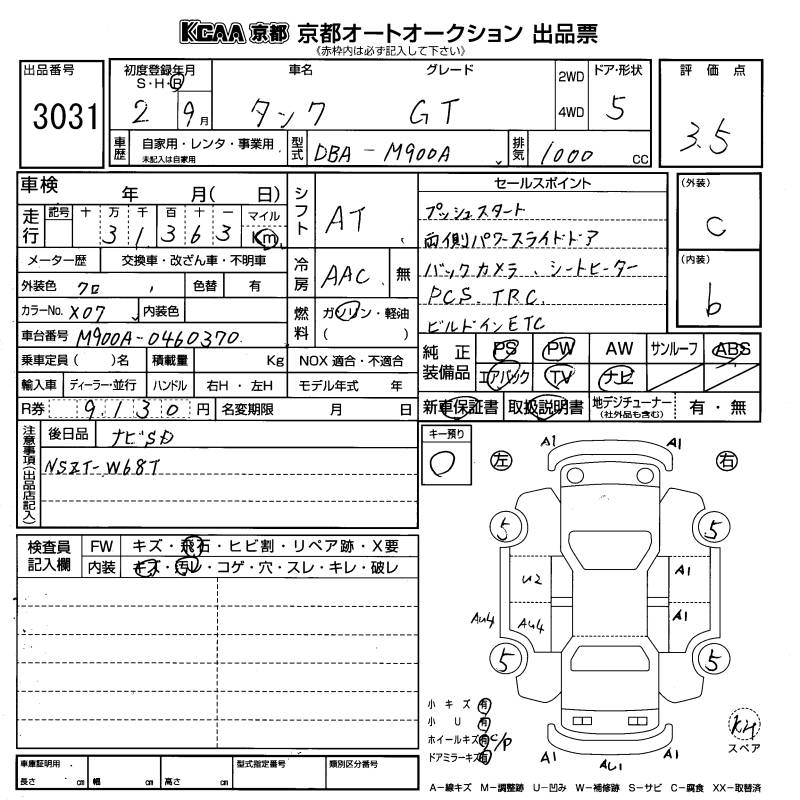 KCAA 京都 京都オートオークション 出品票
《赤枠内は必ず記入して下さい》
出品番号
3031
初度登録年月
S・H・R
2 9月
車名
タンク
グレード
GT
2WD
4WD
ドア・形状
5
評価点
3.5
車歴
自家用・レンタ・事業用
未記入は自家用
型式
DBA-M900A
排気
1000 cc
車検 年 月( 日)
走行
記号 十 万 千 百 十 一
3 1 3 6 3
マイル
Km
メーター歴 交換車・改ざん車・不明車
外装色 クロ 色替 有
カラーNo. X07 内装色
車台番号 M900A-0460370
乗車定員 ( )名 積載量 Kg
輸入車 ディーラー・並行 ハンドル 右H・左H
R券 9,130円 名変期限 月 日
シフト AT
冷房 AAC 無
燃料 ガソリン・軽油
( )
NOX 適合・不適合
モデル年式 年
セールスポイント
プッシュスタート
両側パワースライドドア
バックカメラ、シートヒーター
PCS. TRC.
ビルドインETC
(外装)
C
(内装)
b
純正装備品
PS PW AW サンルーフ ABS
エアバック TV ナビ
新車保証書 取扱説明書 地デジチューナー
(社外品も含む)
有・無
注意事項(出品店記入)
後日品 ナビSD
NSZT-W68T
キー預り
検査員記入欄
FW キズ・飛石・ヒビ割・リペア跡・X要
内装 キズ・汚レ・コゲ・穴・スレ・キレ・破レ
左 右
A1 A1
5 5
U2 A1
AU4 AU4 A1
5 5
A1 AU1 A1
小キズ 有
小U 有
ホイールキズ 有 C/P
ドアミラーキズ 有
スペア
車庫証明用
長さ cm 幅 cm 高さ cm
型式指定番号
類別区分番号
A-線キズ M-調整跡 U-凹み W-補修跡 S-サビ C-腐食 XX-取替済